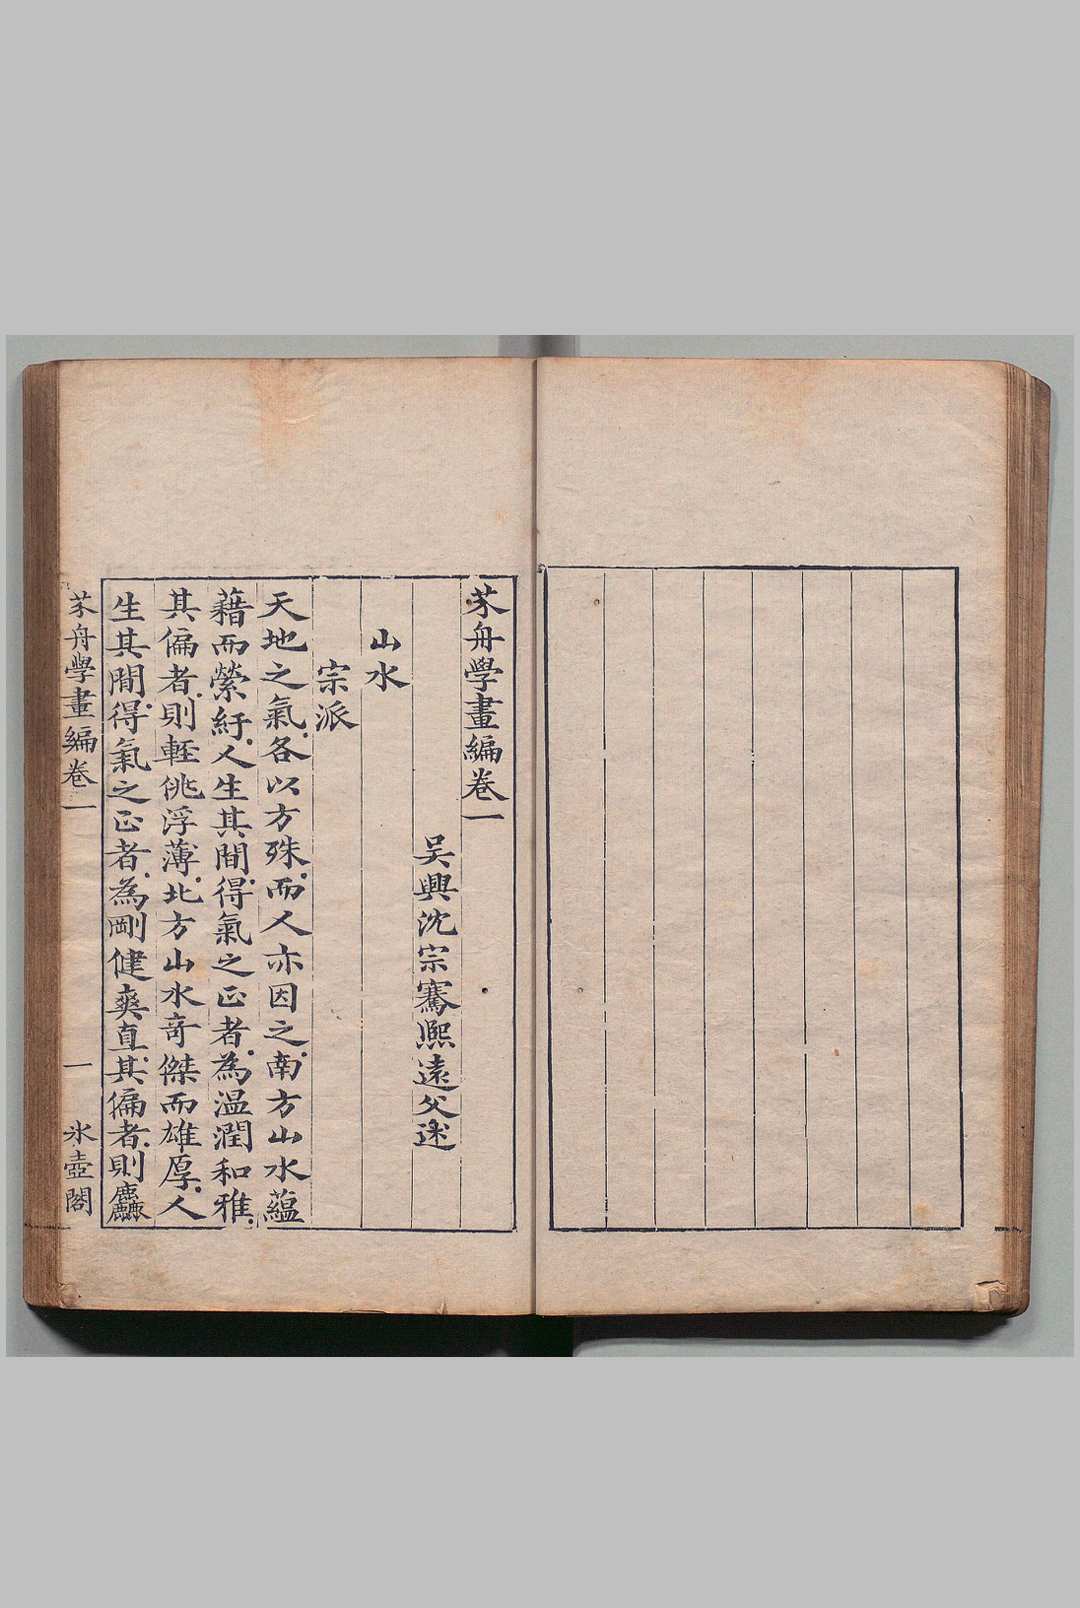 芥舟學畫編卷一
吴興沈宗騫熙遠父述
山水
宗派
天地之氣各以方殊而人亦因之南方山水蘊
藉而縈紆人生其間得氣之正者為温潤和雅
其偏者則輕佻浮薄北方山水奇傑而雄厚人
生其間得氣之正者為剛健爽直其偏者則麤
芥舟學畫編卷一
一
氷壺閣